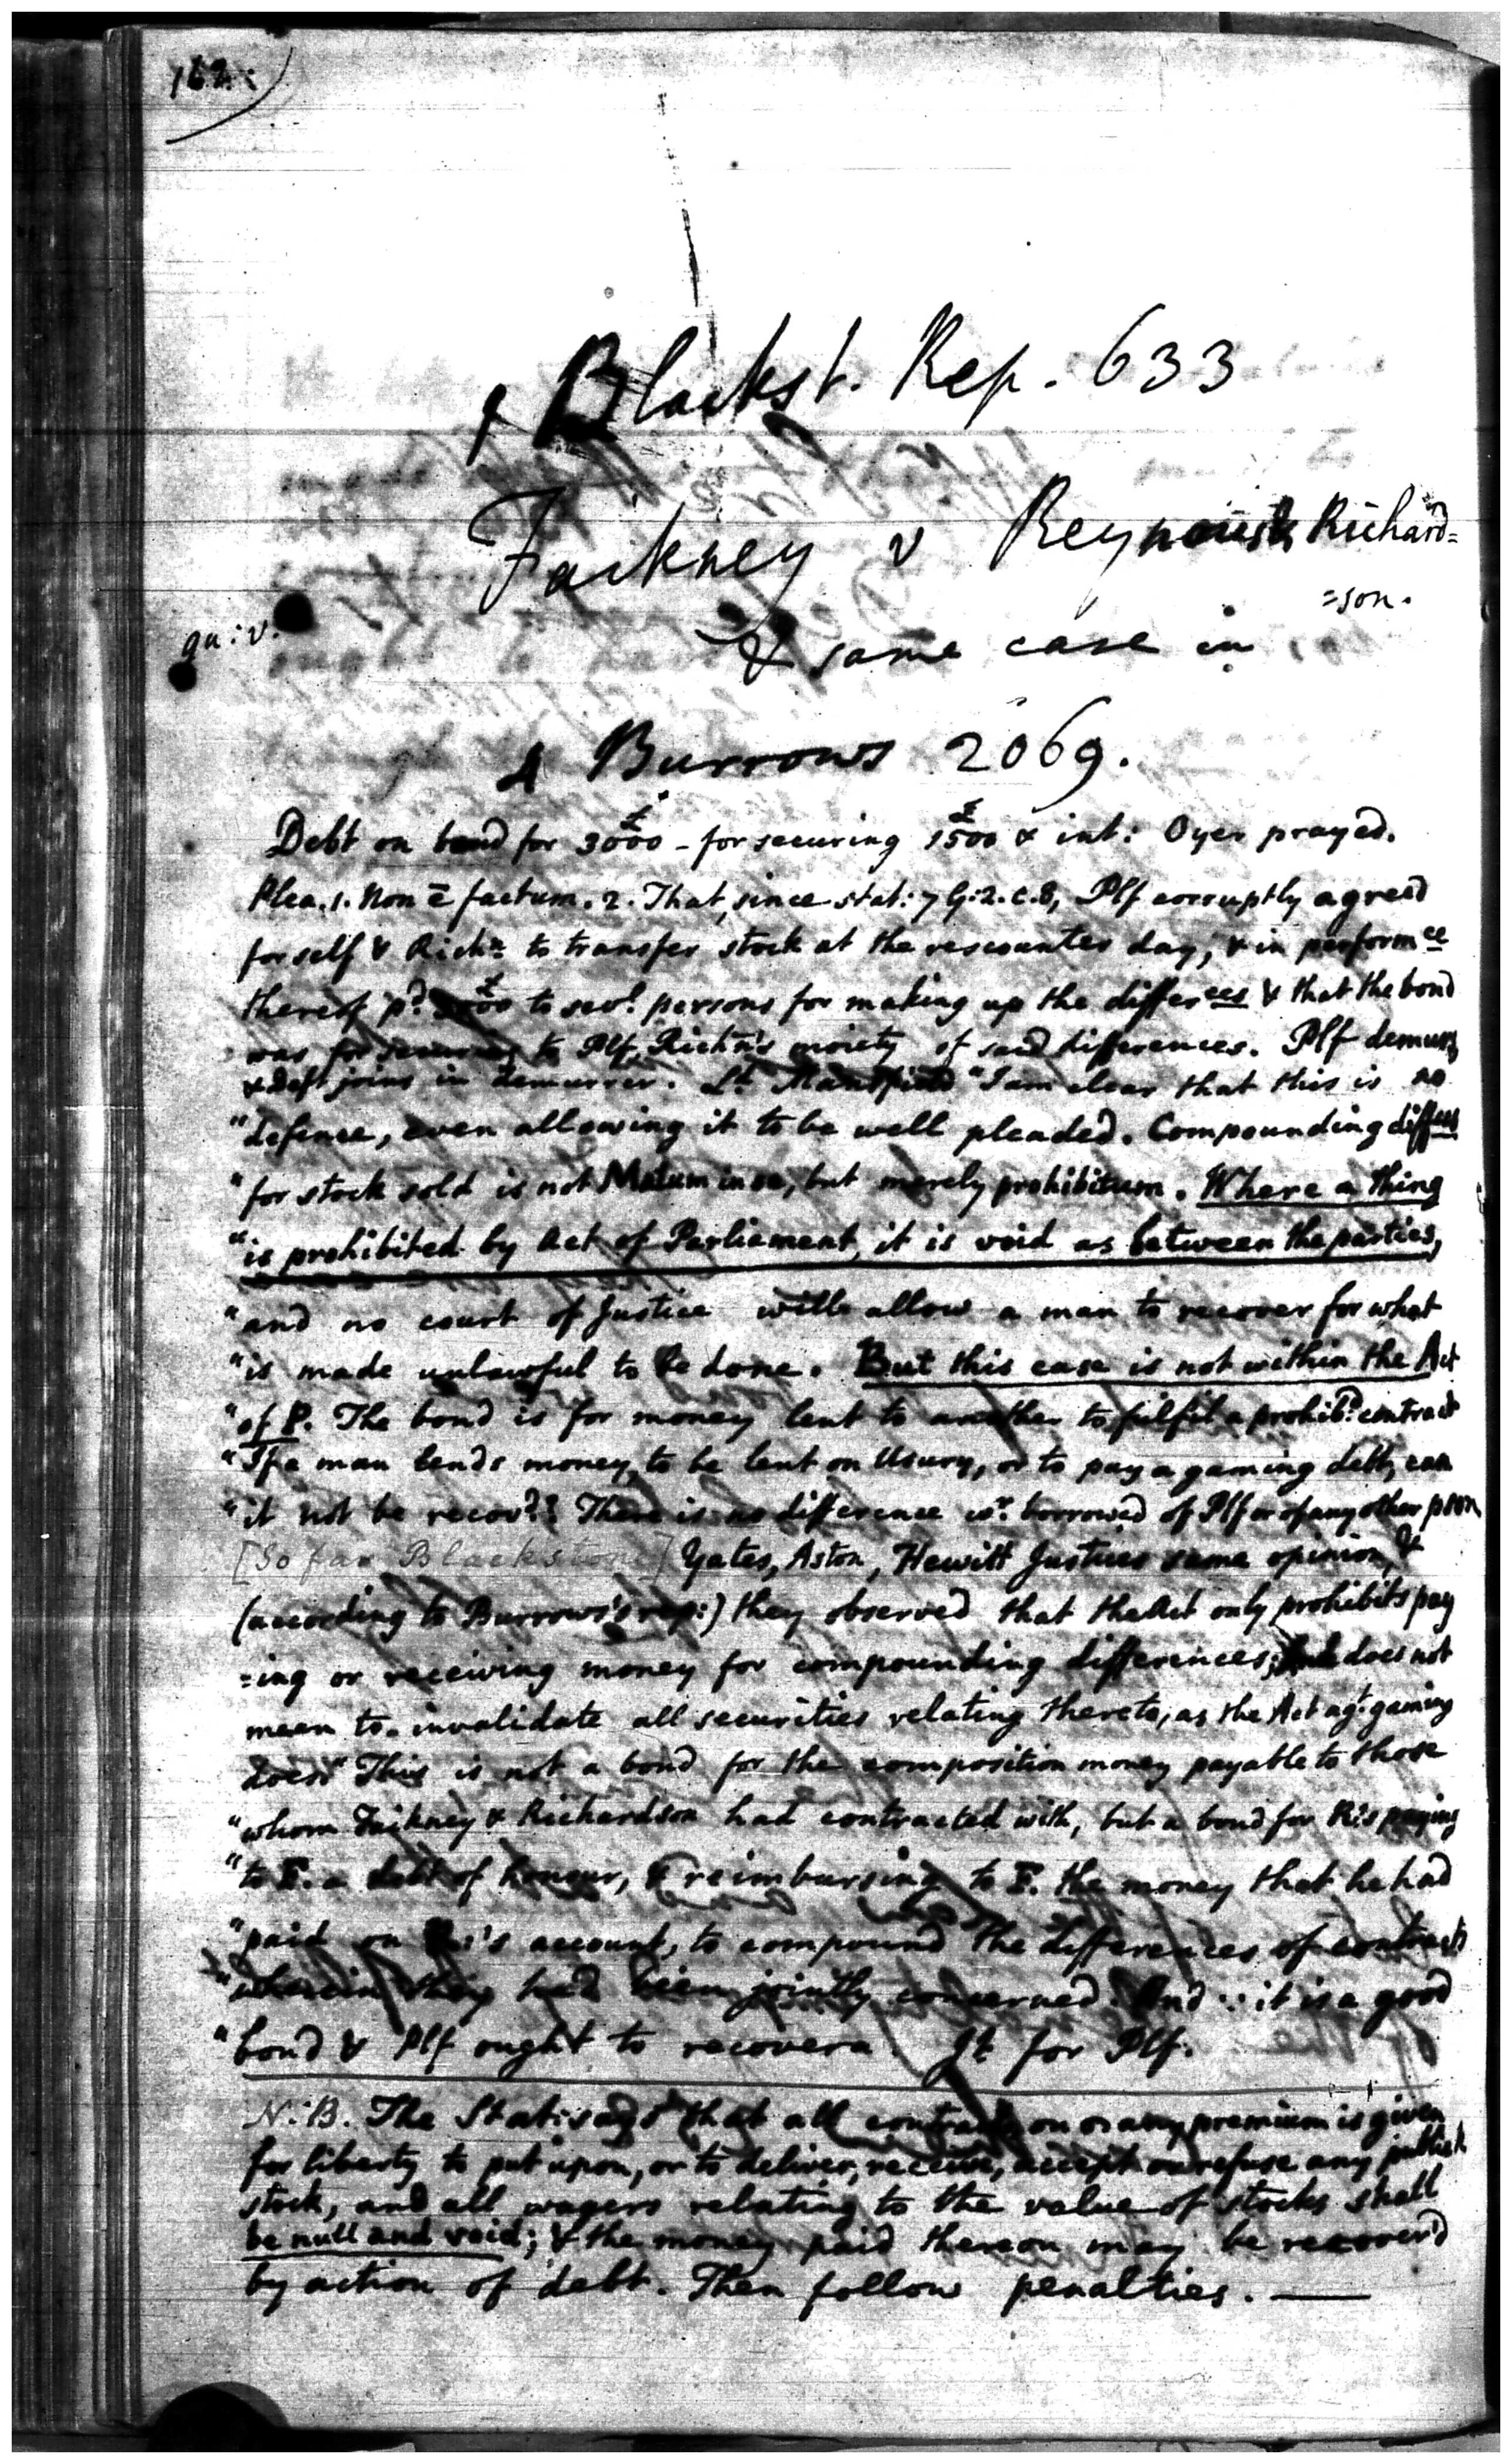 162.
1 Blackst. Rep. 633
Faikney v Reynous & Richard=
=son.
qu: v.
& same case in
4 Burrows 2069.
Debt on bond for 3000£ - for securing 1500£ & int: Oyer prayed.
Plea. 1. Non ē factum. 2. That, since stat: 7 G: 2. c. 8, Plf corruptly agreed
for self & Richn to transfer stock at the rescounter day, & in performce
thereof pd 3000£ to sevl persons for making up the differces & that the bond
was for securing to Plf, Richn's moiety of said differences. Plf demurs
& Deft joins in demurrer. Ld Mansfield "I am clear that this is no
"defence, even allowing it to be well pleaded. Compounding differces
"for stock sold is not Malum in se, but merely prohibitum. Where a thing
"is prohibited by Act of Parliament, it is void as between the parties,
"and no court of Justice will allow a man to recover for what
"is made unlawful to be done. But this case is not within the Act
"of P. The bond is for money lent to another to fulfil a prohibd contract
"If a man lends money, to be lent on Usury, or to pay a gaming debt, can
"it not be recovd? There is no difference wr borrowed of Plf or of any other pson
[So far Blackstone] Yates, Aston, Hewitt Justices same opinion, &
(according to Burrows's rep:) they observed that the Act only prohibits pay
=ing or receiving money for compounding differences; but does not
mean to invalidate all securities relating thereto, as the Act agt gaming
does. "This is not a bond for the composition money payable to those
"whom Faikney & Richardson had contracted with, but a bond for R's paying
"to F. a debt of honour, & reimbursing to F. the money that he had
"paid on R:'s account, to compound the differences of contracts
"wherein they had been jointly concerned. And ∴ it is a good
"bond & Plf ought to recover. Jt for Plf.
N:B. The Stat: says that all contracts on which any premium is given
for liberty to put upon, or to deliver, receive, accept or refuse any publick
stock, and all wagers relating to the value of stocks shall
be null and void; & the money paid thereon may be recover'd
by action of debt. Then follow penalties. —